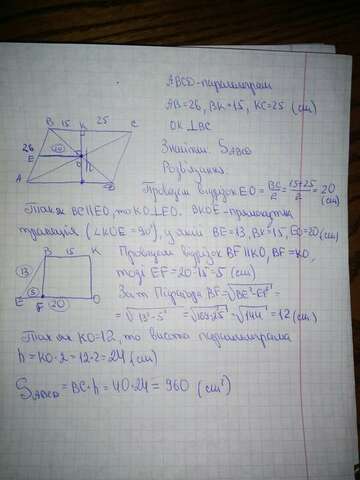 ABCD - паралелограм
AB=26, BK=15, KC=25 (см)
OK⊥BC
Знайти: S_ABCD
Розв'язання.
Проведем відрізок EO = BC/2 = (15+25)/2 = 20 (см)
Так як BC||EO, то KO⊥EO. BKOE - прямокутна
трапеція (∠KOE = 90°), у якій BE=13, BK=15, EO=20 (см)
Проведем відрізок BF||KO, BF=KO,
тоді EF=20-15=5 (см)
За т. Піфагора BF=√BE²-EF²=
=√13²-5² =√169-25 =√144 =12 (см)
Так як KO=12, то висота паралелограма
h=KO·2=12·2=24 (см)
S_ABCD=BC·h=40·24=960 (см²)
B 15 K 25 C
26
E 20 O h
A D
B 15 K
13
E 5 F 20 O